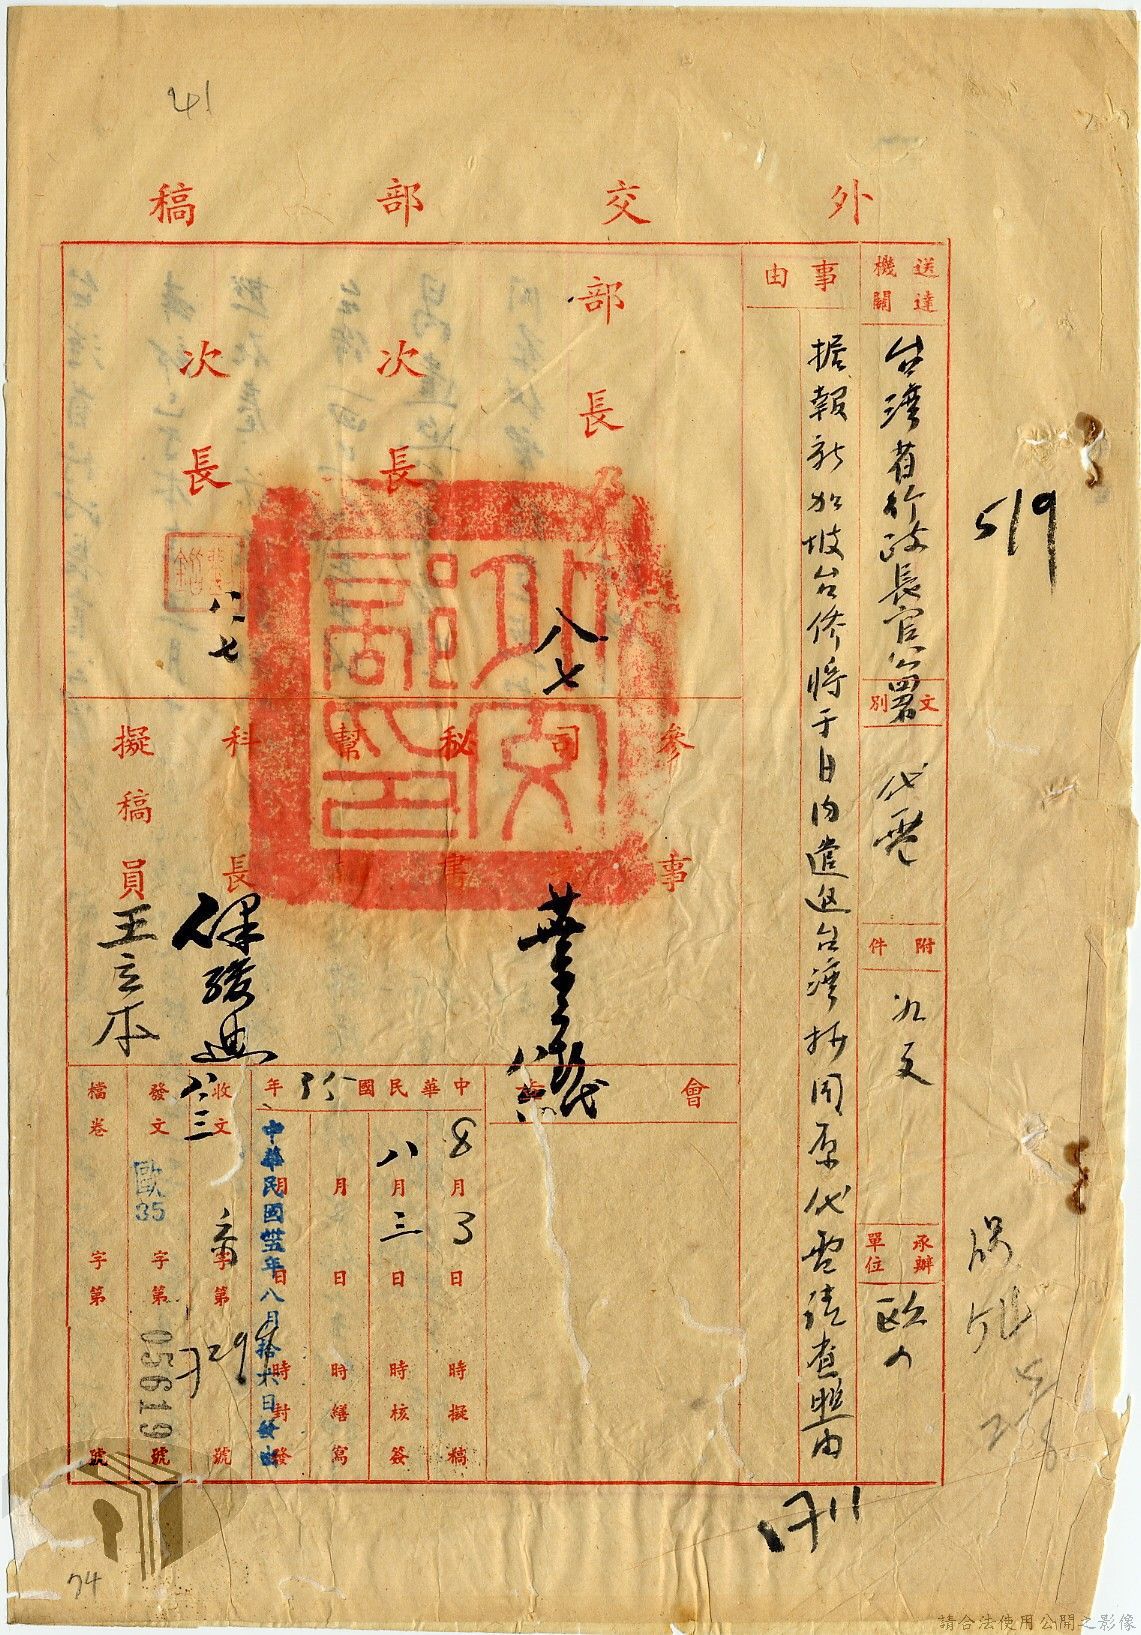 41
外交部稿
送達機關
台湾省行政長官公署
文別
代電
附件
如文
承辦單位
欧
事由
据報新加坡台僑將于日內遣返台灣抄同原代電請查照由
部長
八七
次長
次長
八七
參事
司長
秘書
幫辦
科長
擬稿員
王立本
八三
會
中華民國35年
8月3日時擬稿
八月三日時核簽
月日時繕寫
月日時封發
中華民國卅五年八月拾六日發出
收文字第號
發文歐35字第05619號
檔卷字第號
519
1711
74
請合法使用公開之影像